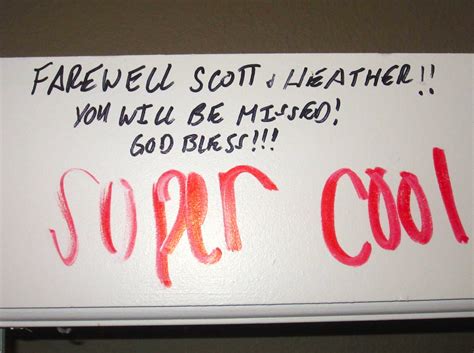 FAREWELL SCOTT & HEATHER!!
YOU WILL BE MISSED!
GOD BLESS!!!
super cool